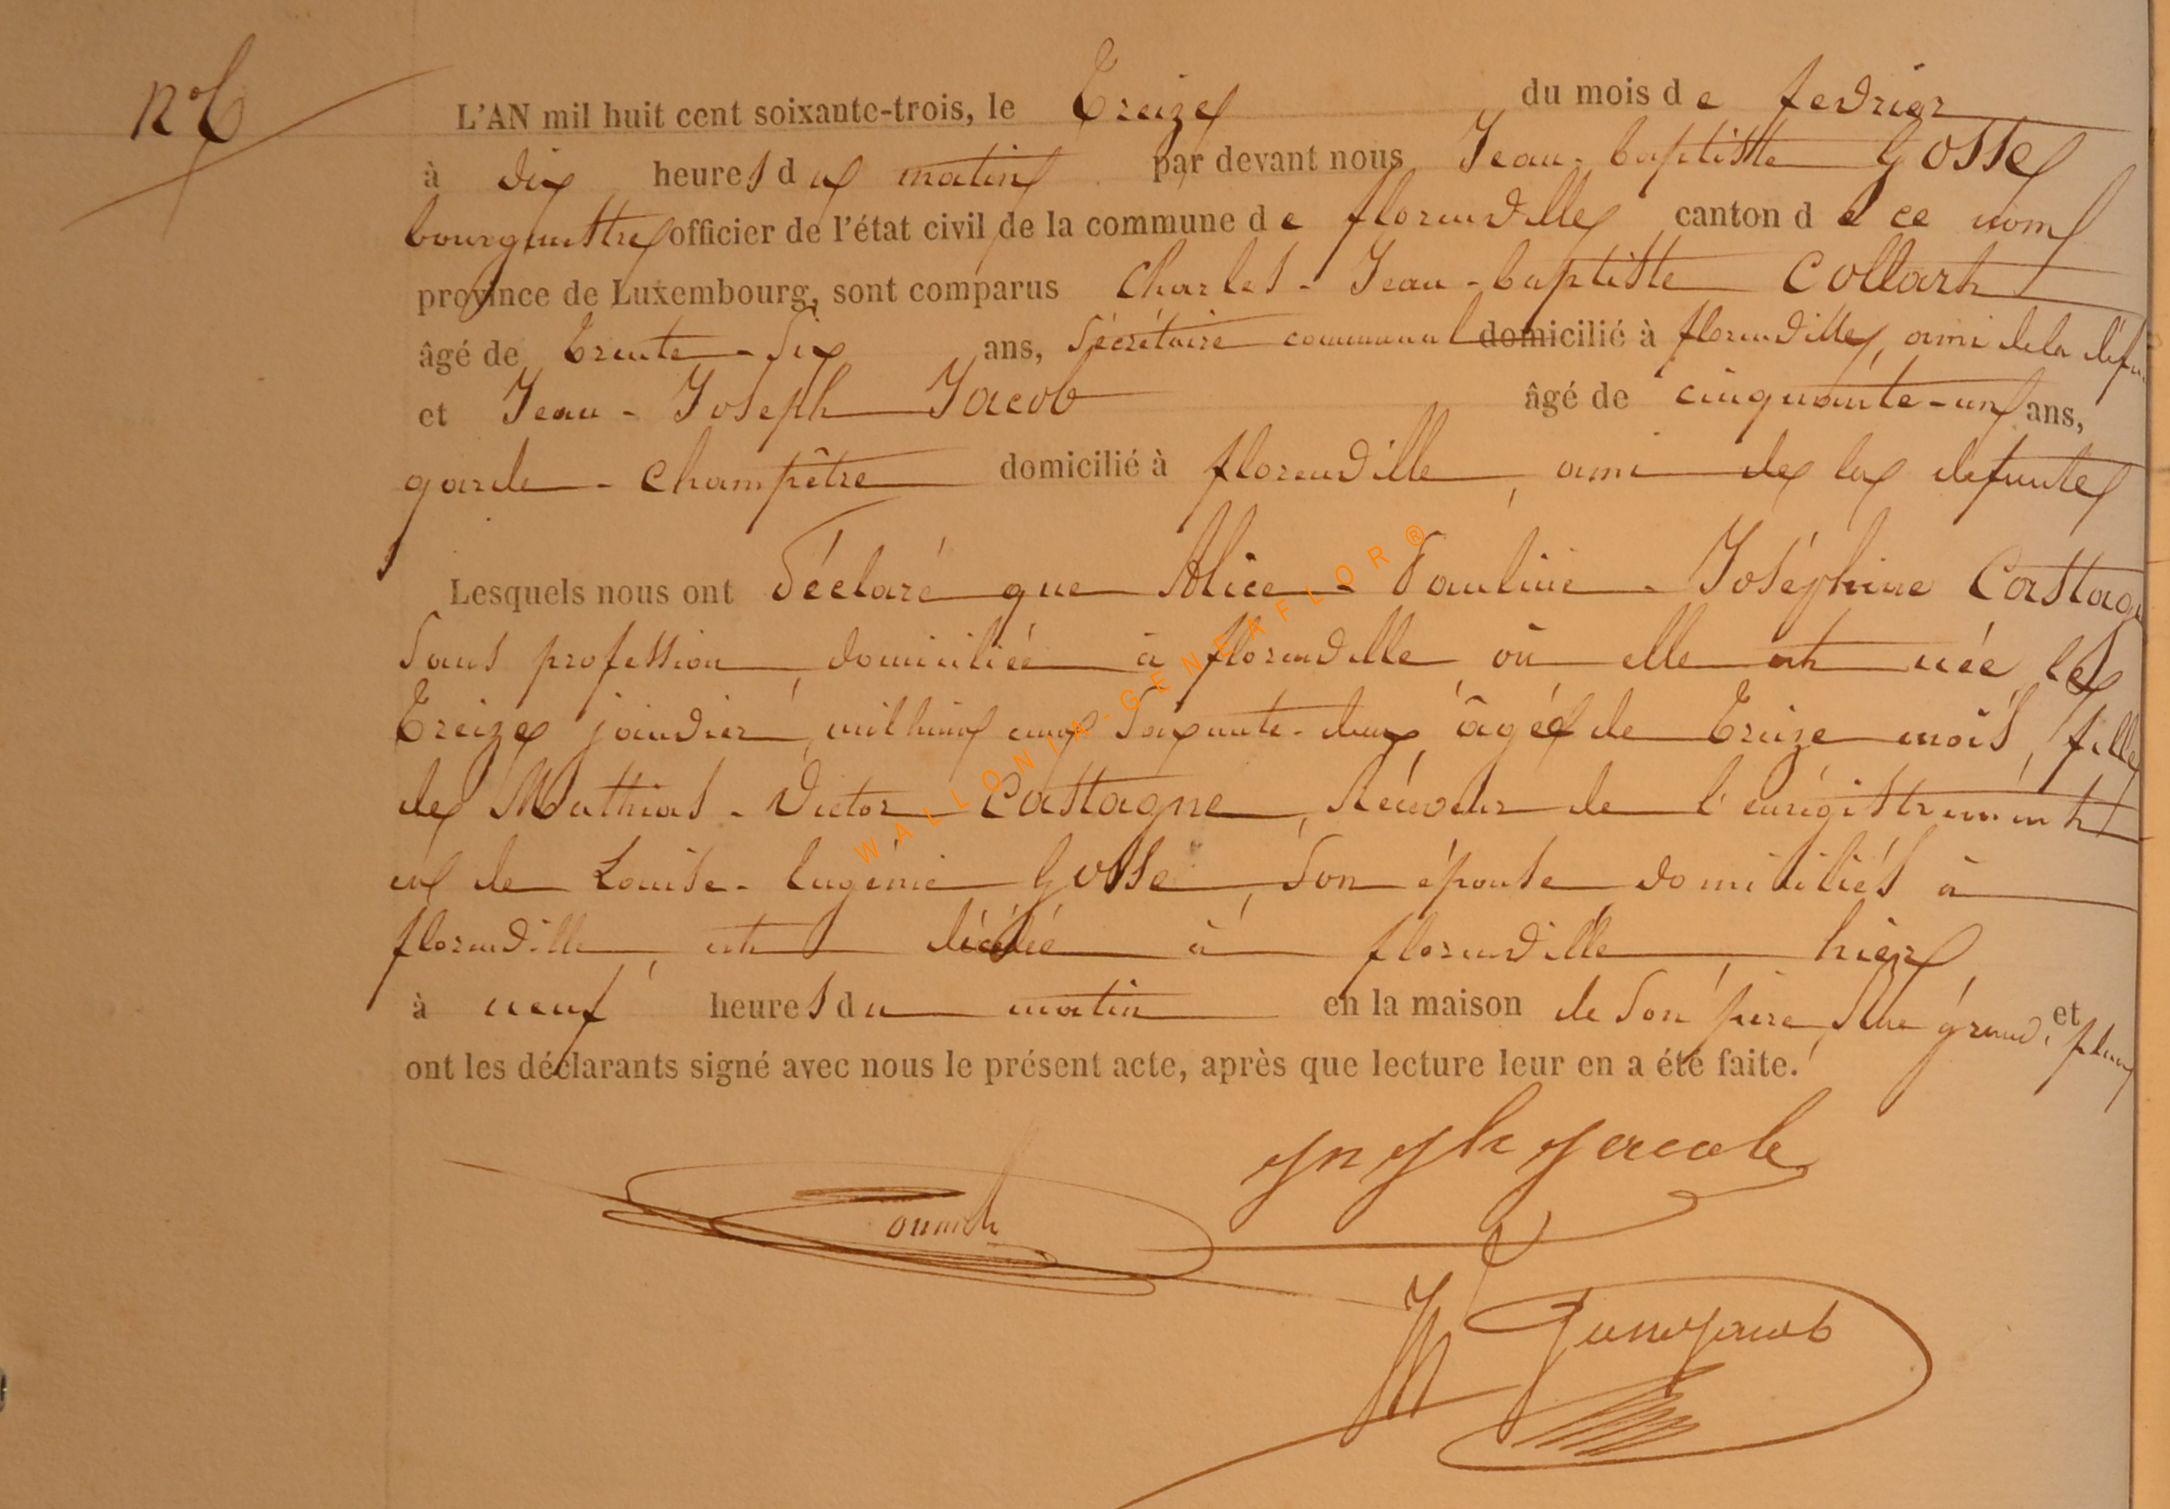 N° 6
L'AN mil huit cent soixante-trois, le Treize du mois de fevrier
à dix heures du matin par devant nous Jean-baptiste Gosse
bourgmestre officier de l'état civil de la commune de florenville canton de ce nom
province de Luxembourg, sont comparus Charles-Jean-baptiste Collart
âgé de trente-six ans, Sécrétaire communal domicilié à florenville, ami de la
et Jean-Joseph Jacob âgé de cinquante-un ans,
garde-champêtre domicilié à florenville, ami de la defunte
Lesquels nous ont déclaré que Alice-Pauline-Joséphine Castagne
Sans profession, domiciliée à florenville où elle est née le
Treize janvier, mil huit cent Soixante-deux, âgée de Treize mois, fille
de Mathias-Victor Castagne, Réceveur de l'enrégistrement
et de Louise-Eugénie Gosse, Son épouse domiciliés à
florenville, est décédée à florenville, hier,
à neuf heures du matin en la maison de Son père, et
ont les déclarants signé avec nous le présent acte, après que lecture leur en a été faite.
WALLONIA-GENEAFLOR®